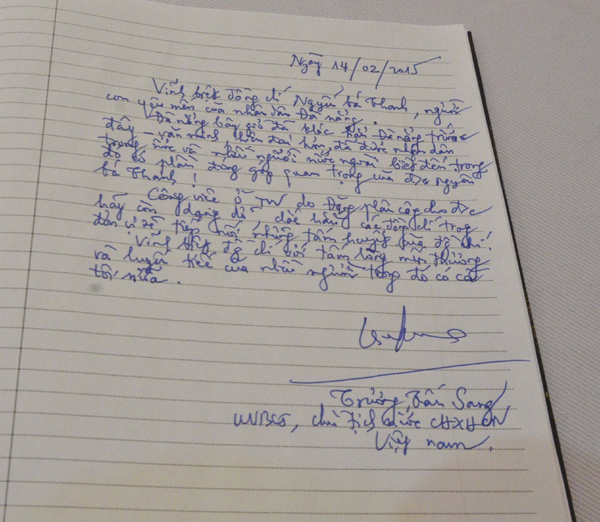 Ngày 14/02/2015
Vĩnh biệt đồng chí Nguyễn bá Thanh, người
con yêu mến của nhân dân Đà nẵng.
Đà nẵng bây giờ đã khác hẳn Đà nẵng trước
đây – văn minh hiện đại hơn, đã được nhân dân
trong nước và nhiều người nước ngoài biết đến trong
đó có phần đóng góp quan trọng của đ/c Nguyễn
bá Thanh!
Công việc ở TW do Đảng phân công cho đ/c
hãy còn dang dở – chắc rằng các đồng chí trong
đơn vị sẽ tiếp nối những tâm huyết của đ/c!
Vĩnh biệt đ/c với tấm lòng mến thương
và luyến tiếc của nhiều người trong đó có cả
tôi nữa.
Trương Tấn Sang
UVBCT, chủ tịch nước CHXHCN
Việt nam.